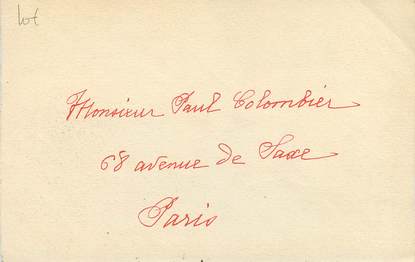 lot
Monsieur Paul Colombier
68 avenue de Saxe
Paris